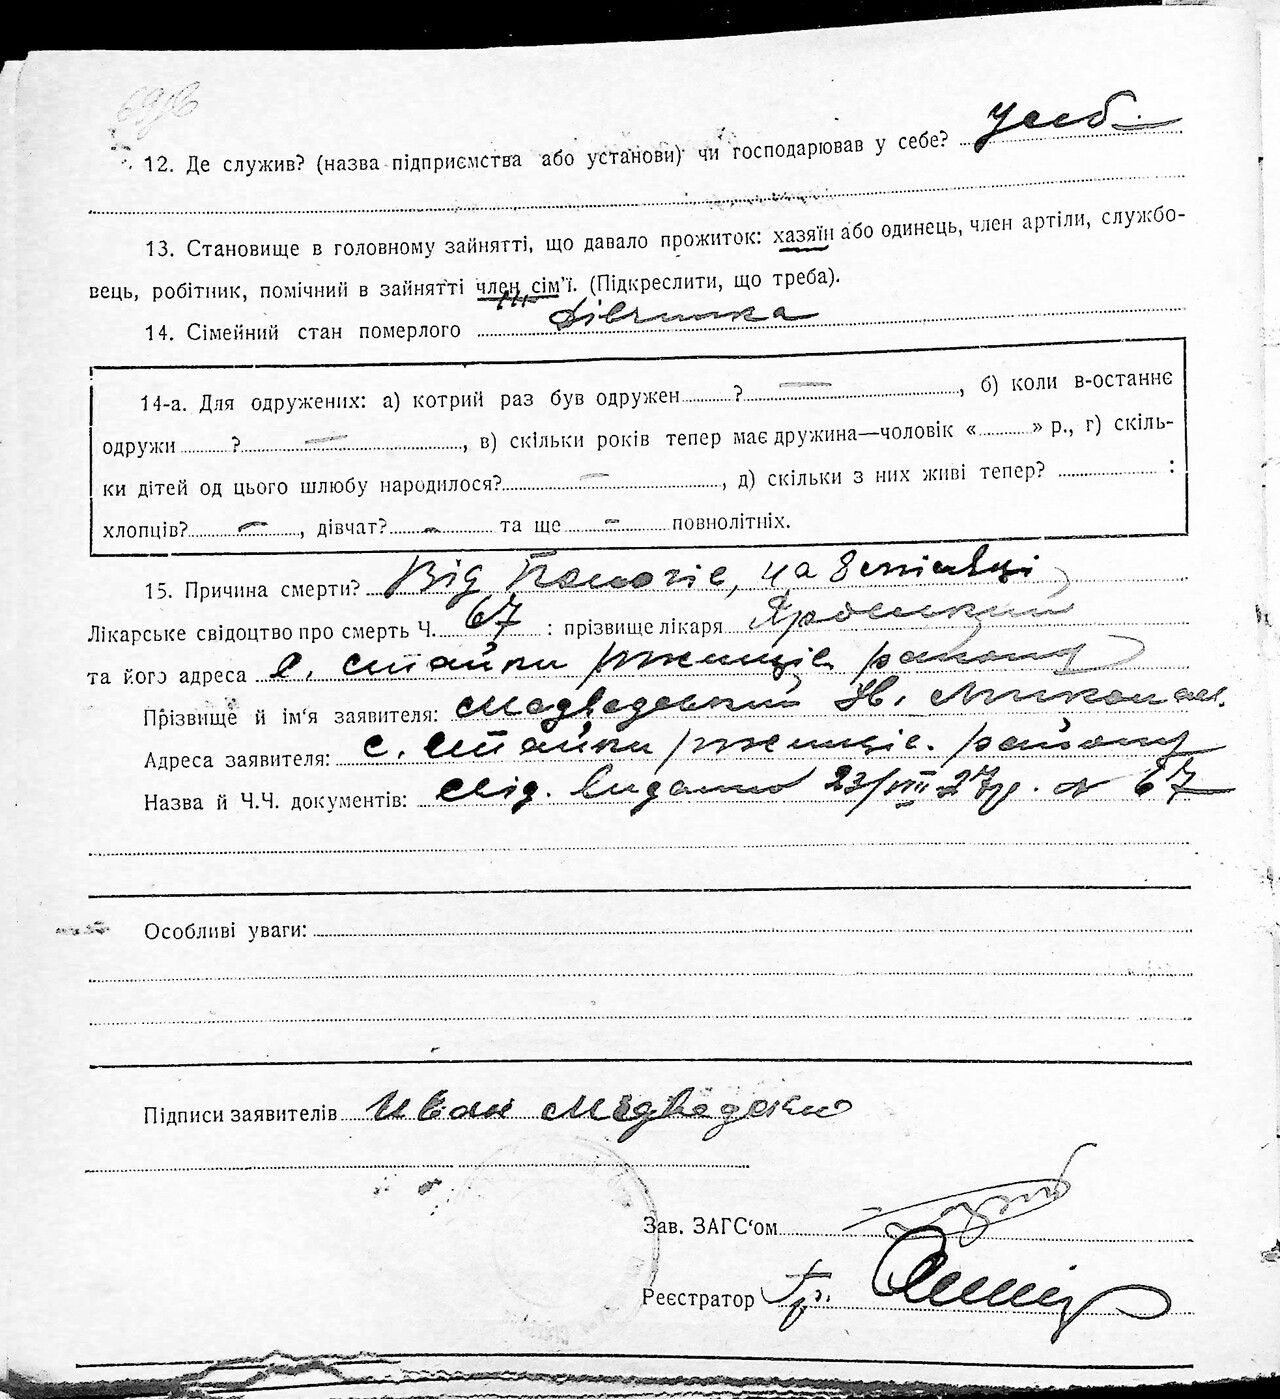 12. Де служив? (назва підприємства або установи) чи господарював у себе? у себ.
13. Становище в головному зайнятті, що давало прожиток: хазяїн або одинець, член артіли, службо-
вець, робітник, помічний в зайнятті член сім'ї. (Підкреслити, що треба).
14. Сімейний стан померлого Дівчинка
14-а. Для одружених: а) котрий раз був одружен ? —, б) коли в-останнє
одружи ? —, в) скільки років тепер має дружина—чоловік « » р., г) скіль-
ки дітей од цього шлюбу народилося? —, д) скільки з них живі тепер? :
хлопців? —, дівчат? — та ще — повнолітніх.
15. Причина смерти? Від на 8 місяці
Лікарське свідоцтво про смерть Ч. 67 : прізвище лікаря
та його адреса с. Стайки ржищів. району
Прізвище й ім'я заявителя: Медведський Ів.
Адреса заявителя: с. Стайки ржищів. району
Назва й Ч.Ч. документів: Слід. видано 23/VIII 27р. № 67
Особливі уваги:
Підписи заявителів Иван
Зав. ЗАГС'ом
Реєстратор